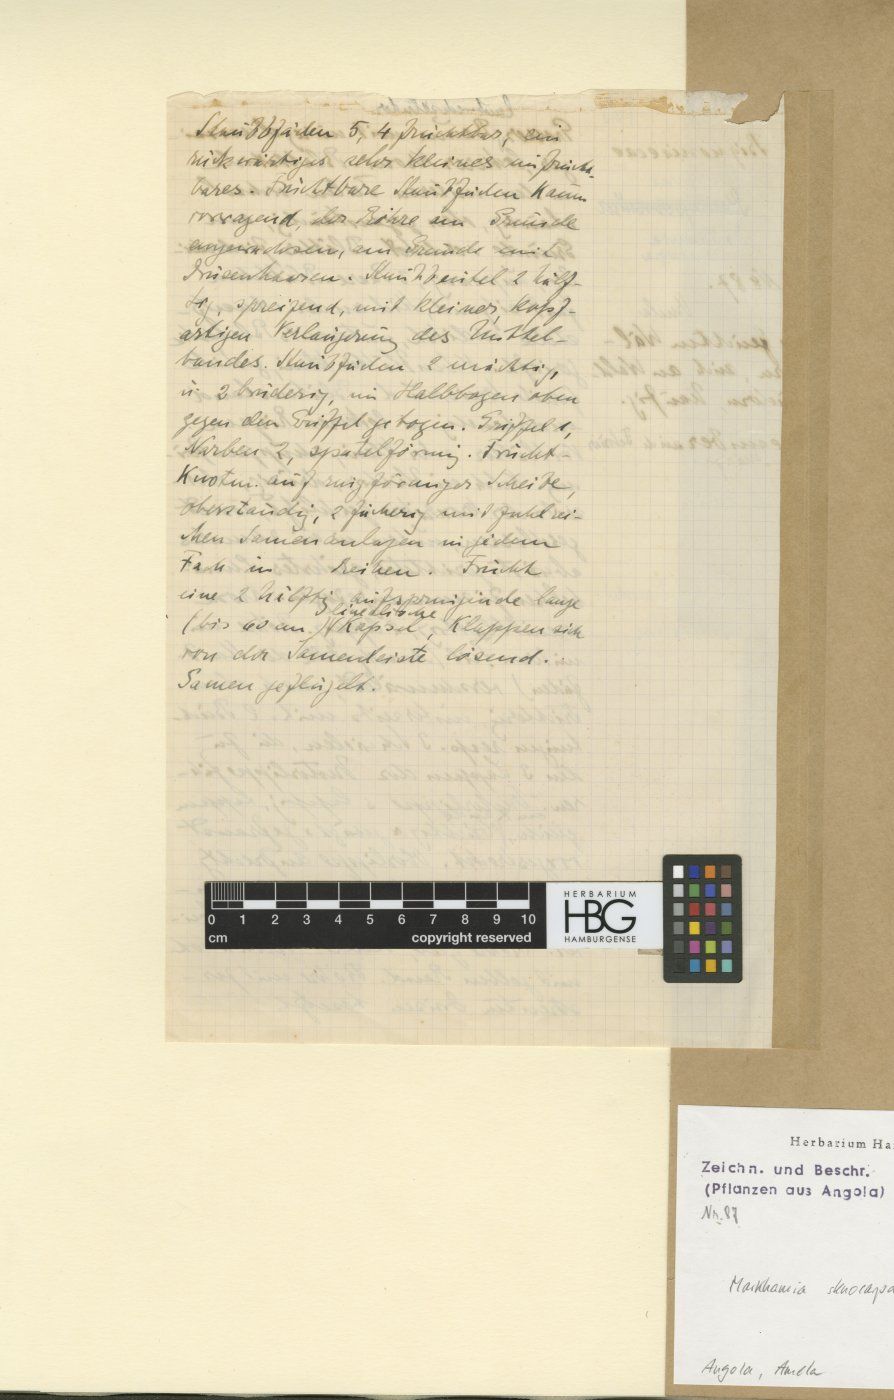 Staubfäden 5, 4 fruchtbar, ein
rückwärtiges sehr kleines unfrucht-
bares. Fruchtbare Staubfäden kaum
vorragend, der Röhre am Grunde
angewachsen, am Grunde mit
Drüsenhaaren. Staubbeutel 2 hälf-
tig, spreizend, mit kleiner, kopf-
artigen Verlängerung des Mittel-
bandes. Staubfäden 2 mächtig,
u. 2 brüderig, im Halbbogen oben
gegen den Griffel gebogen. Griffel 1,
Narben 2, spatelförmig. Frucht-
knoten auf ringförmiger Scheibe,
oberständig, 2 fächerig mit zahlrei-
chen Samenanlagen in jedem
Fach in Reihen. Frucht
eine 2 hälftig aufspringende lange
linealische
(bis 60 cm.) Kapsel, Klappen sich
von der Samenleiste lösend.
Samen geflügelt.
0 1 2 3 4 5 6 7 8 9 10
cm copyright reserved
HERBARIUM
HBG
HAMBURGENSE
Herbarium Ha
Zeichn. und Beschr.
(Pflanzen aus Angola)
Nr. 87
Markhamia
Angola,